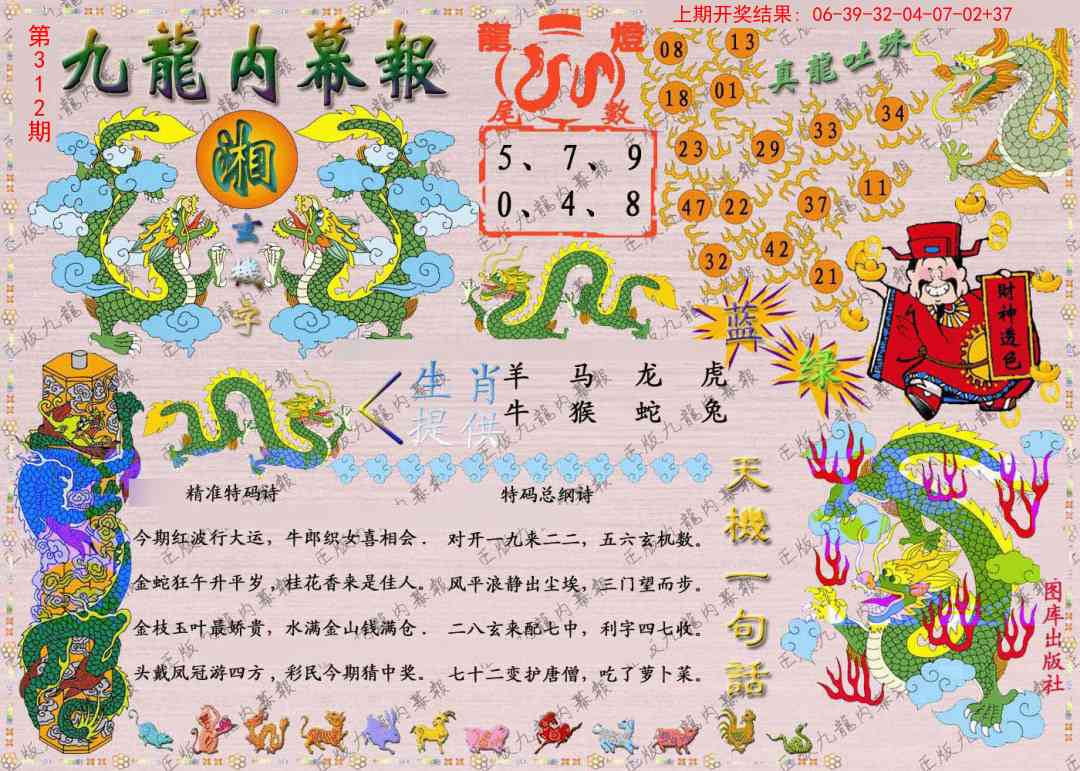 上期开奖结果：06-39-32-04-07-02+37
第312期
九龍内幕報
湘
玄機字
龍燈
尾數
5、7、9
0、4、8
真龍吐珠
08 13
18 01
23 29 33 34
47 22 37 11
32 42 21
蓝
绿
财神透色
生肖提供
羊 马 龙 虎
牛 猴 蛇 兔
精准特码诗
今期红波行大运，牛郎织女喜相会．
金蛇狂午升平岁，桂花香来是佳人。
金枝玉叶最娇贵，水满金山钱满仓．
头戴凤冠游四方，彩民今期猜中奖。
特码总纲诗
对开一九来二二，五六玄机数。
风平浪静出尘埃，三门望而步。
二八玄来配七中，利字四七收。
七十二变护唐僧，吃了萝卜菜。
天機一句話
图库出版社
正版九龍内幕報